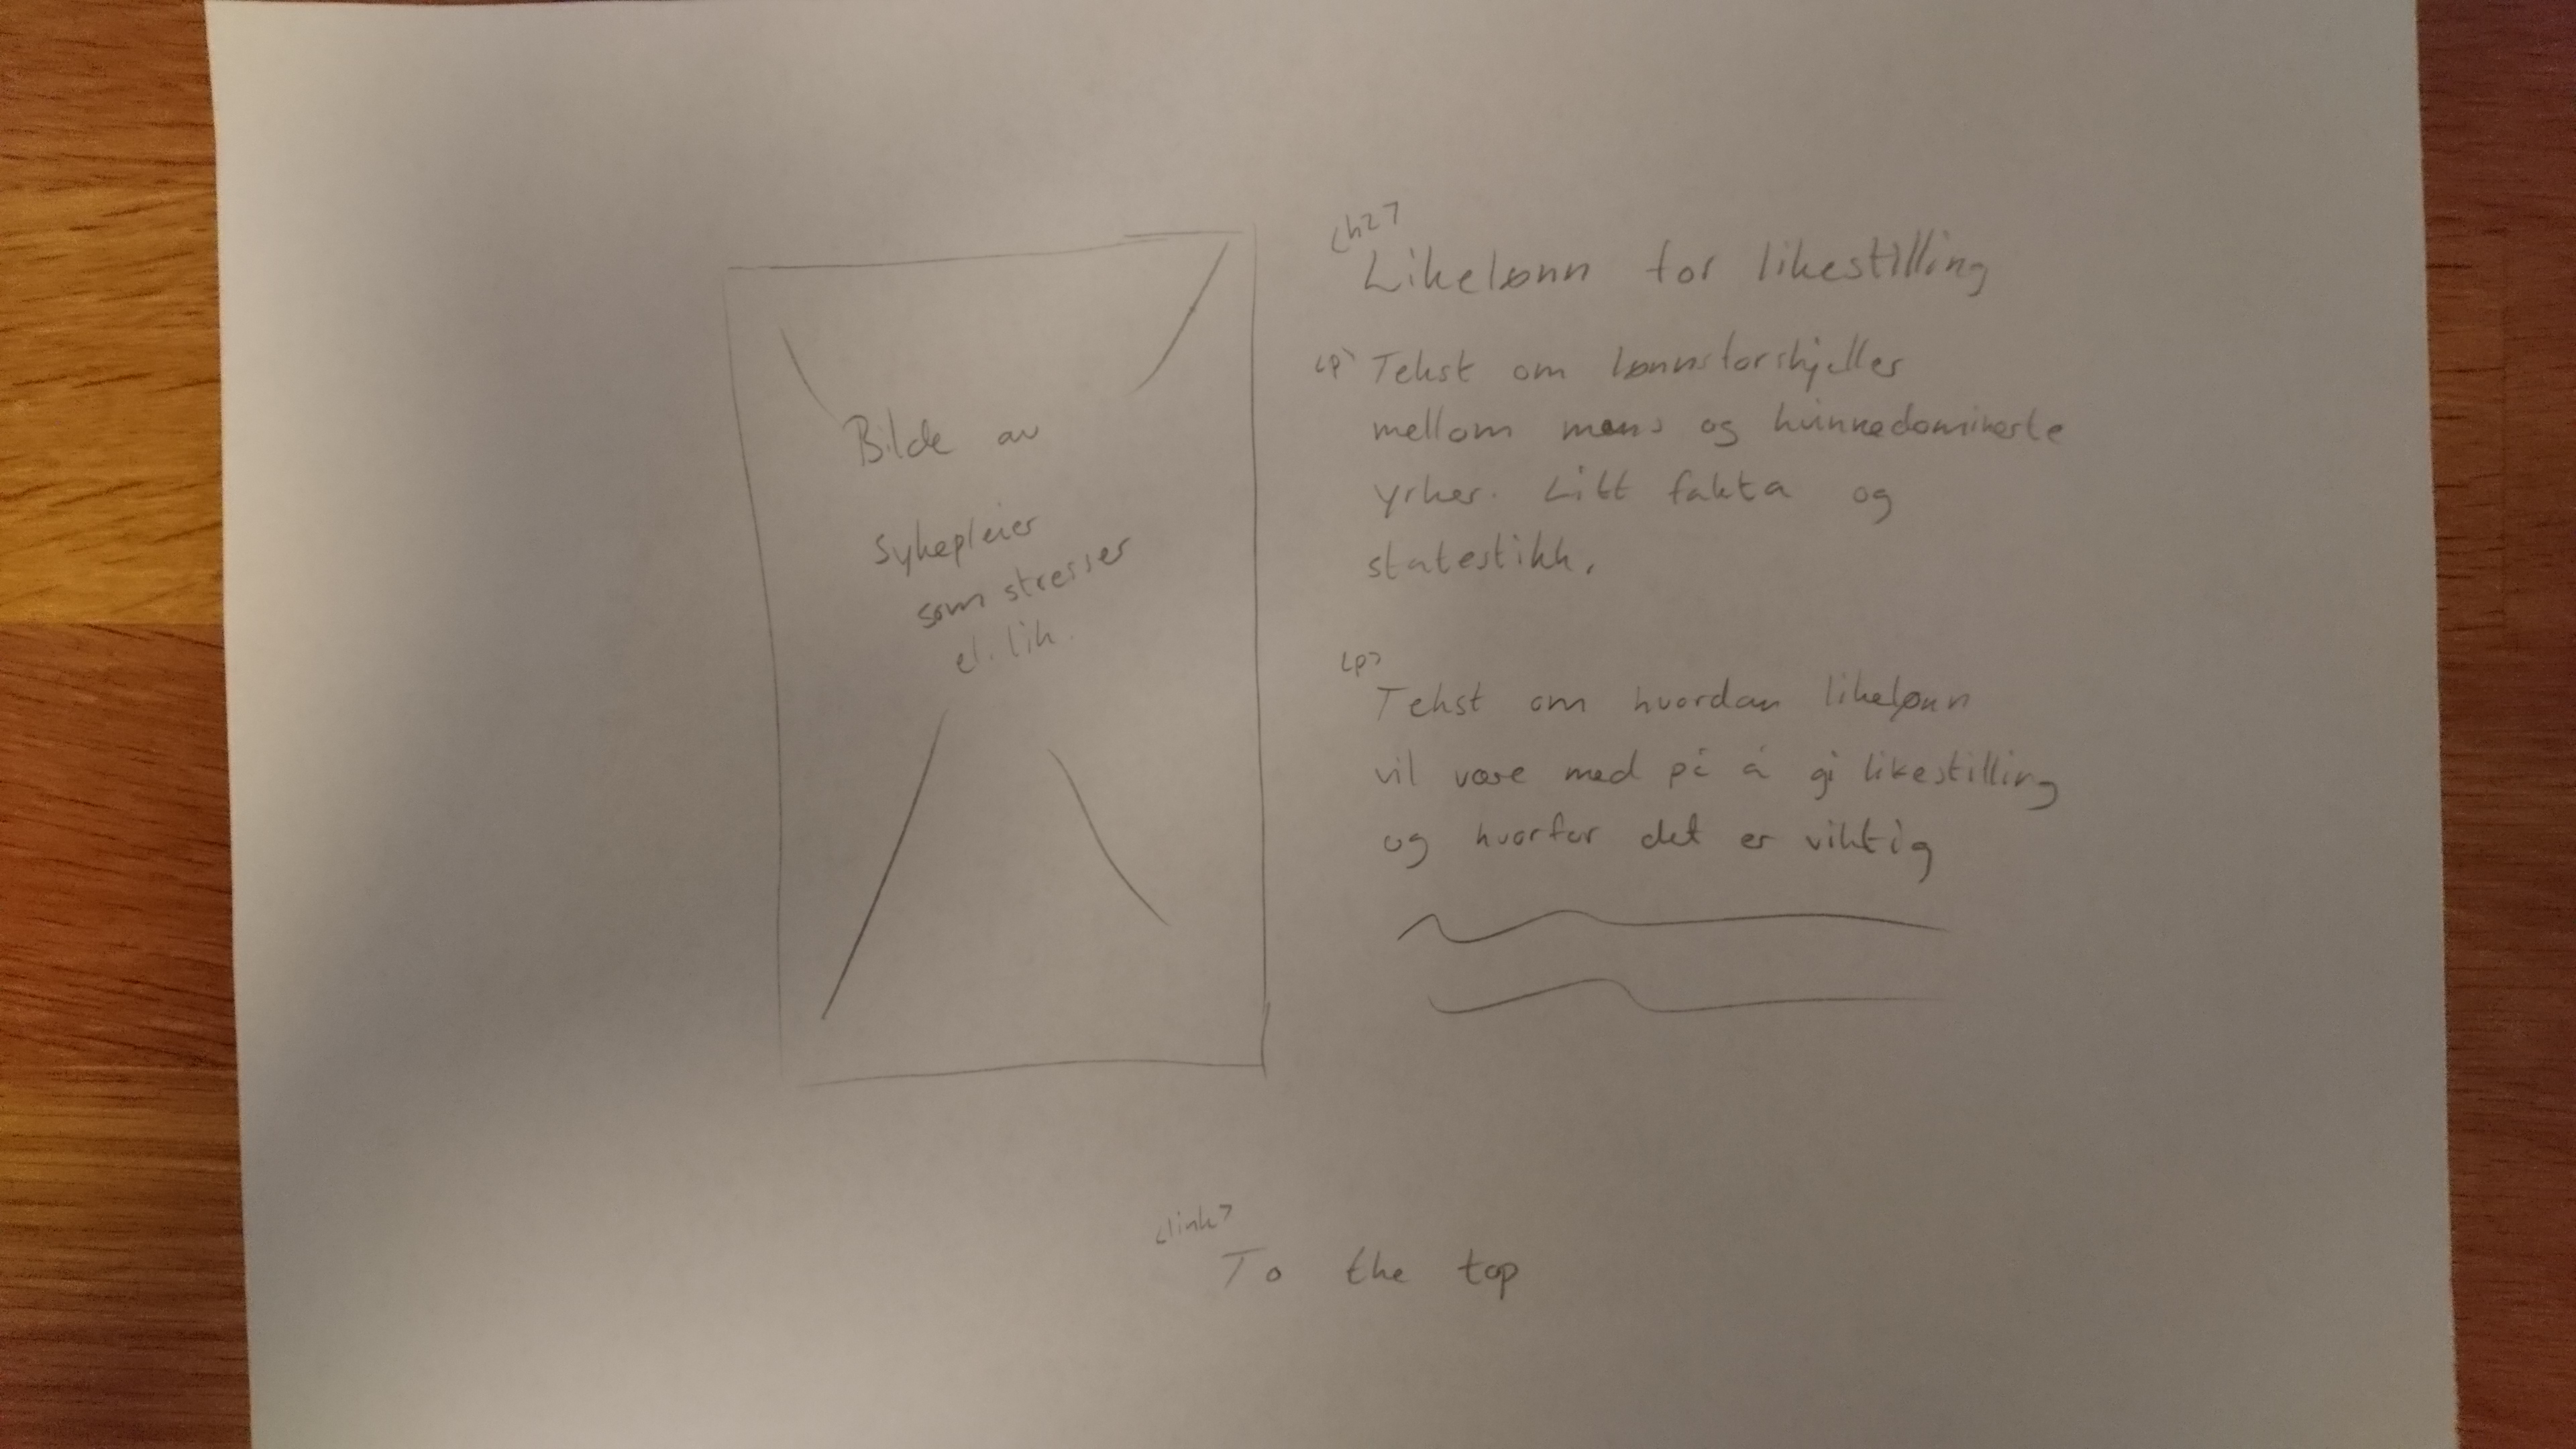 Bilde av
Sykepleier
som stresser
el. lik.
<h2>
Likelønn for likestilling
<p> Tekst om lønnsforskjeller
mellom menns og kvinnedominerte
yrker. Litt fakta og
statestikk.
<p>
Tekst om hvordan likelønn
vil være med på å gi likestilling
og hvorfor det er viktig
<link>
To the top